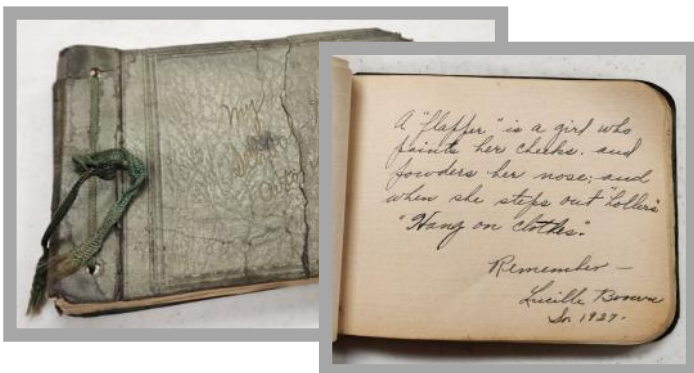 My
School
Auto
A "flapper" is a girl who
paints her cheeks. and
powders her nose; and
when she steps out "hollers"
"Hang on clothes".
Remember —
Lucille Browne
Sr. 1927.